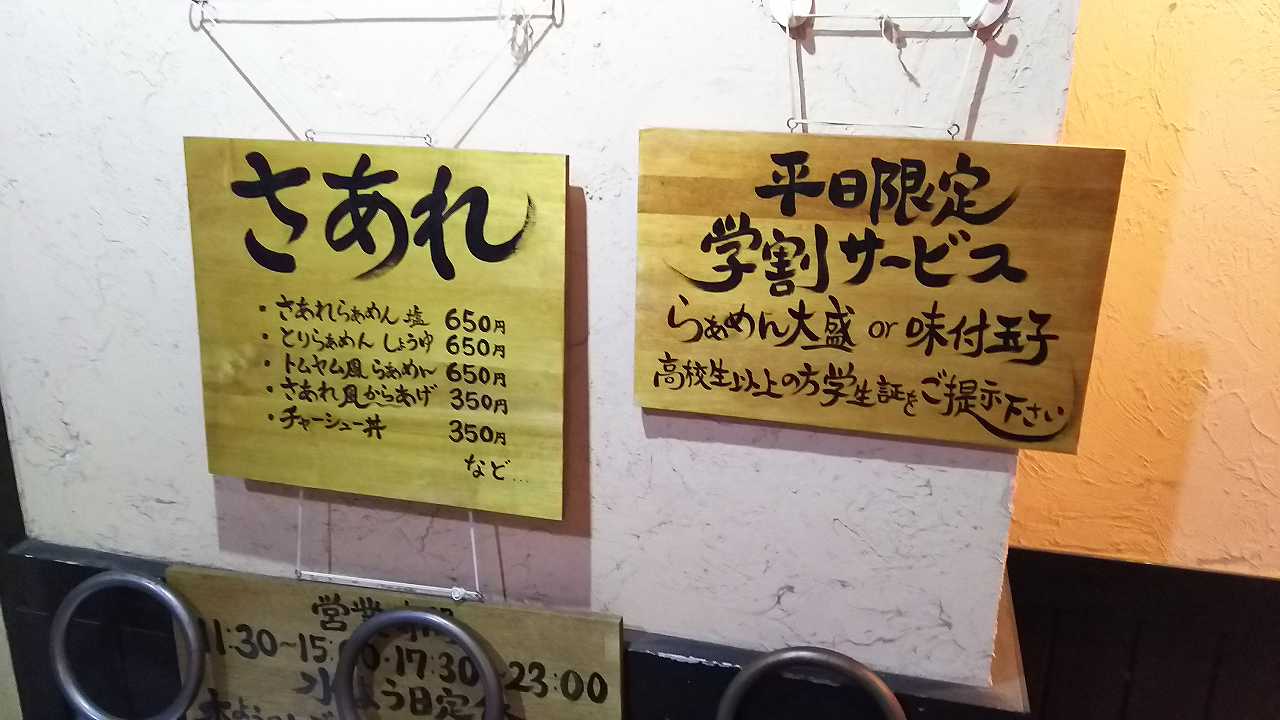 さあれ
・さあれらぁめん 塩 650円
・とりらぁめん しょうゆ 650円
・トムヤム風らぁめん 650円
・さあれ風からあげ 350円
・チャーシュー丼 350円
など…
平日限定
学割サービス
らぁめん大盛 or 味付玉子
高校生以上の方学生証をご提示下さい
営業
11:30~15: 0・17:30 23:00
水 よう日定